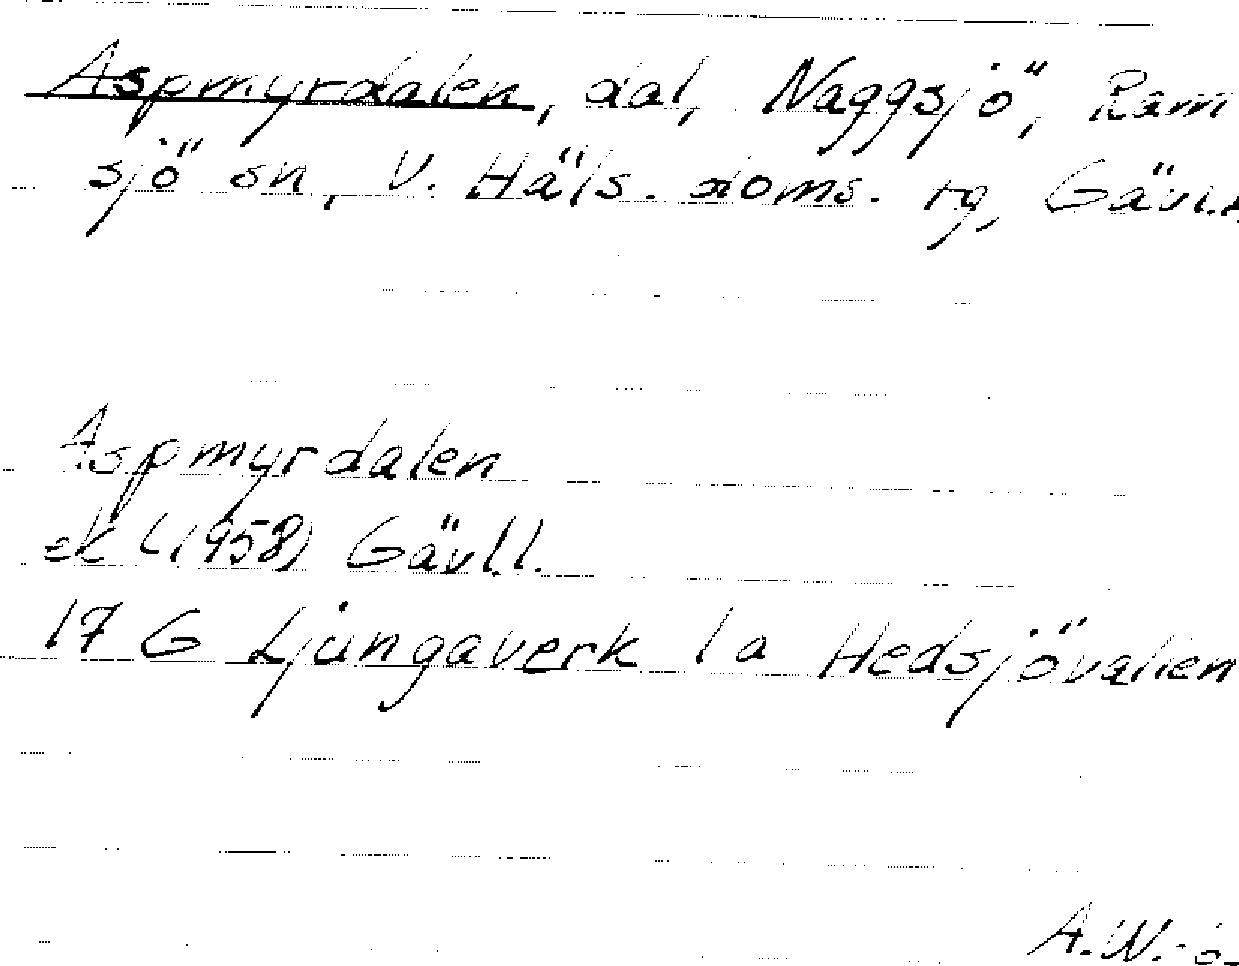 Aspmyrdalen, dal, Naggsjö, Ram
sjö sn, V. Häls. doms. rg, Gävl.l
Aspmyrdalen
ek (1958) Gävl.l.
17 G Ljungaverk 1a Hedsjövallen
A.W.-ö-